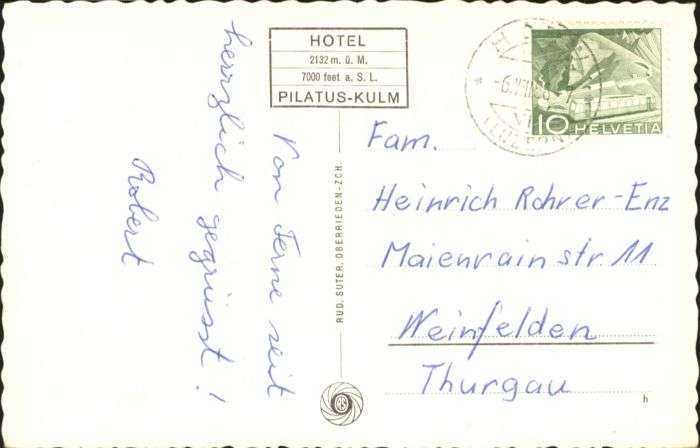 HOTEL
2132 m. ü. M.
7000 feet a. S. L.
PILATUS-KULM
Von Ferne seit
herzlich gegrüsst!
Robert
RUD. SUTER, OBERRIEDEN-ZCH.
10 HELVETIA
Fam.
Heinrich Rohrer-Enz
Maienrainstr. 11
Weinfelden
Thurgau
h